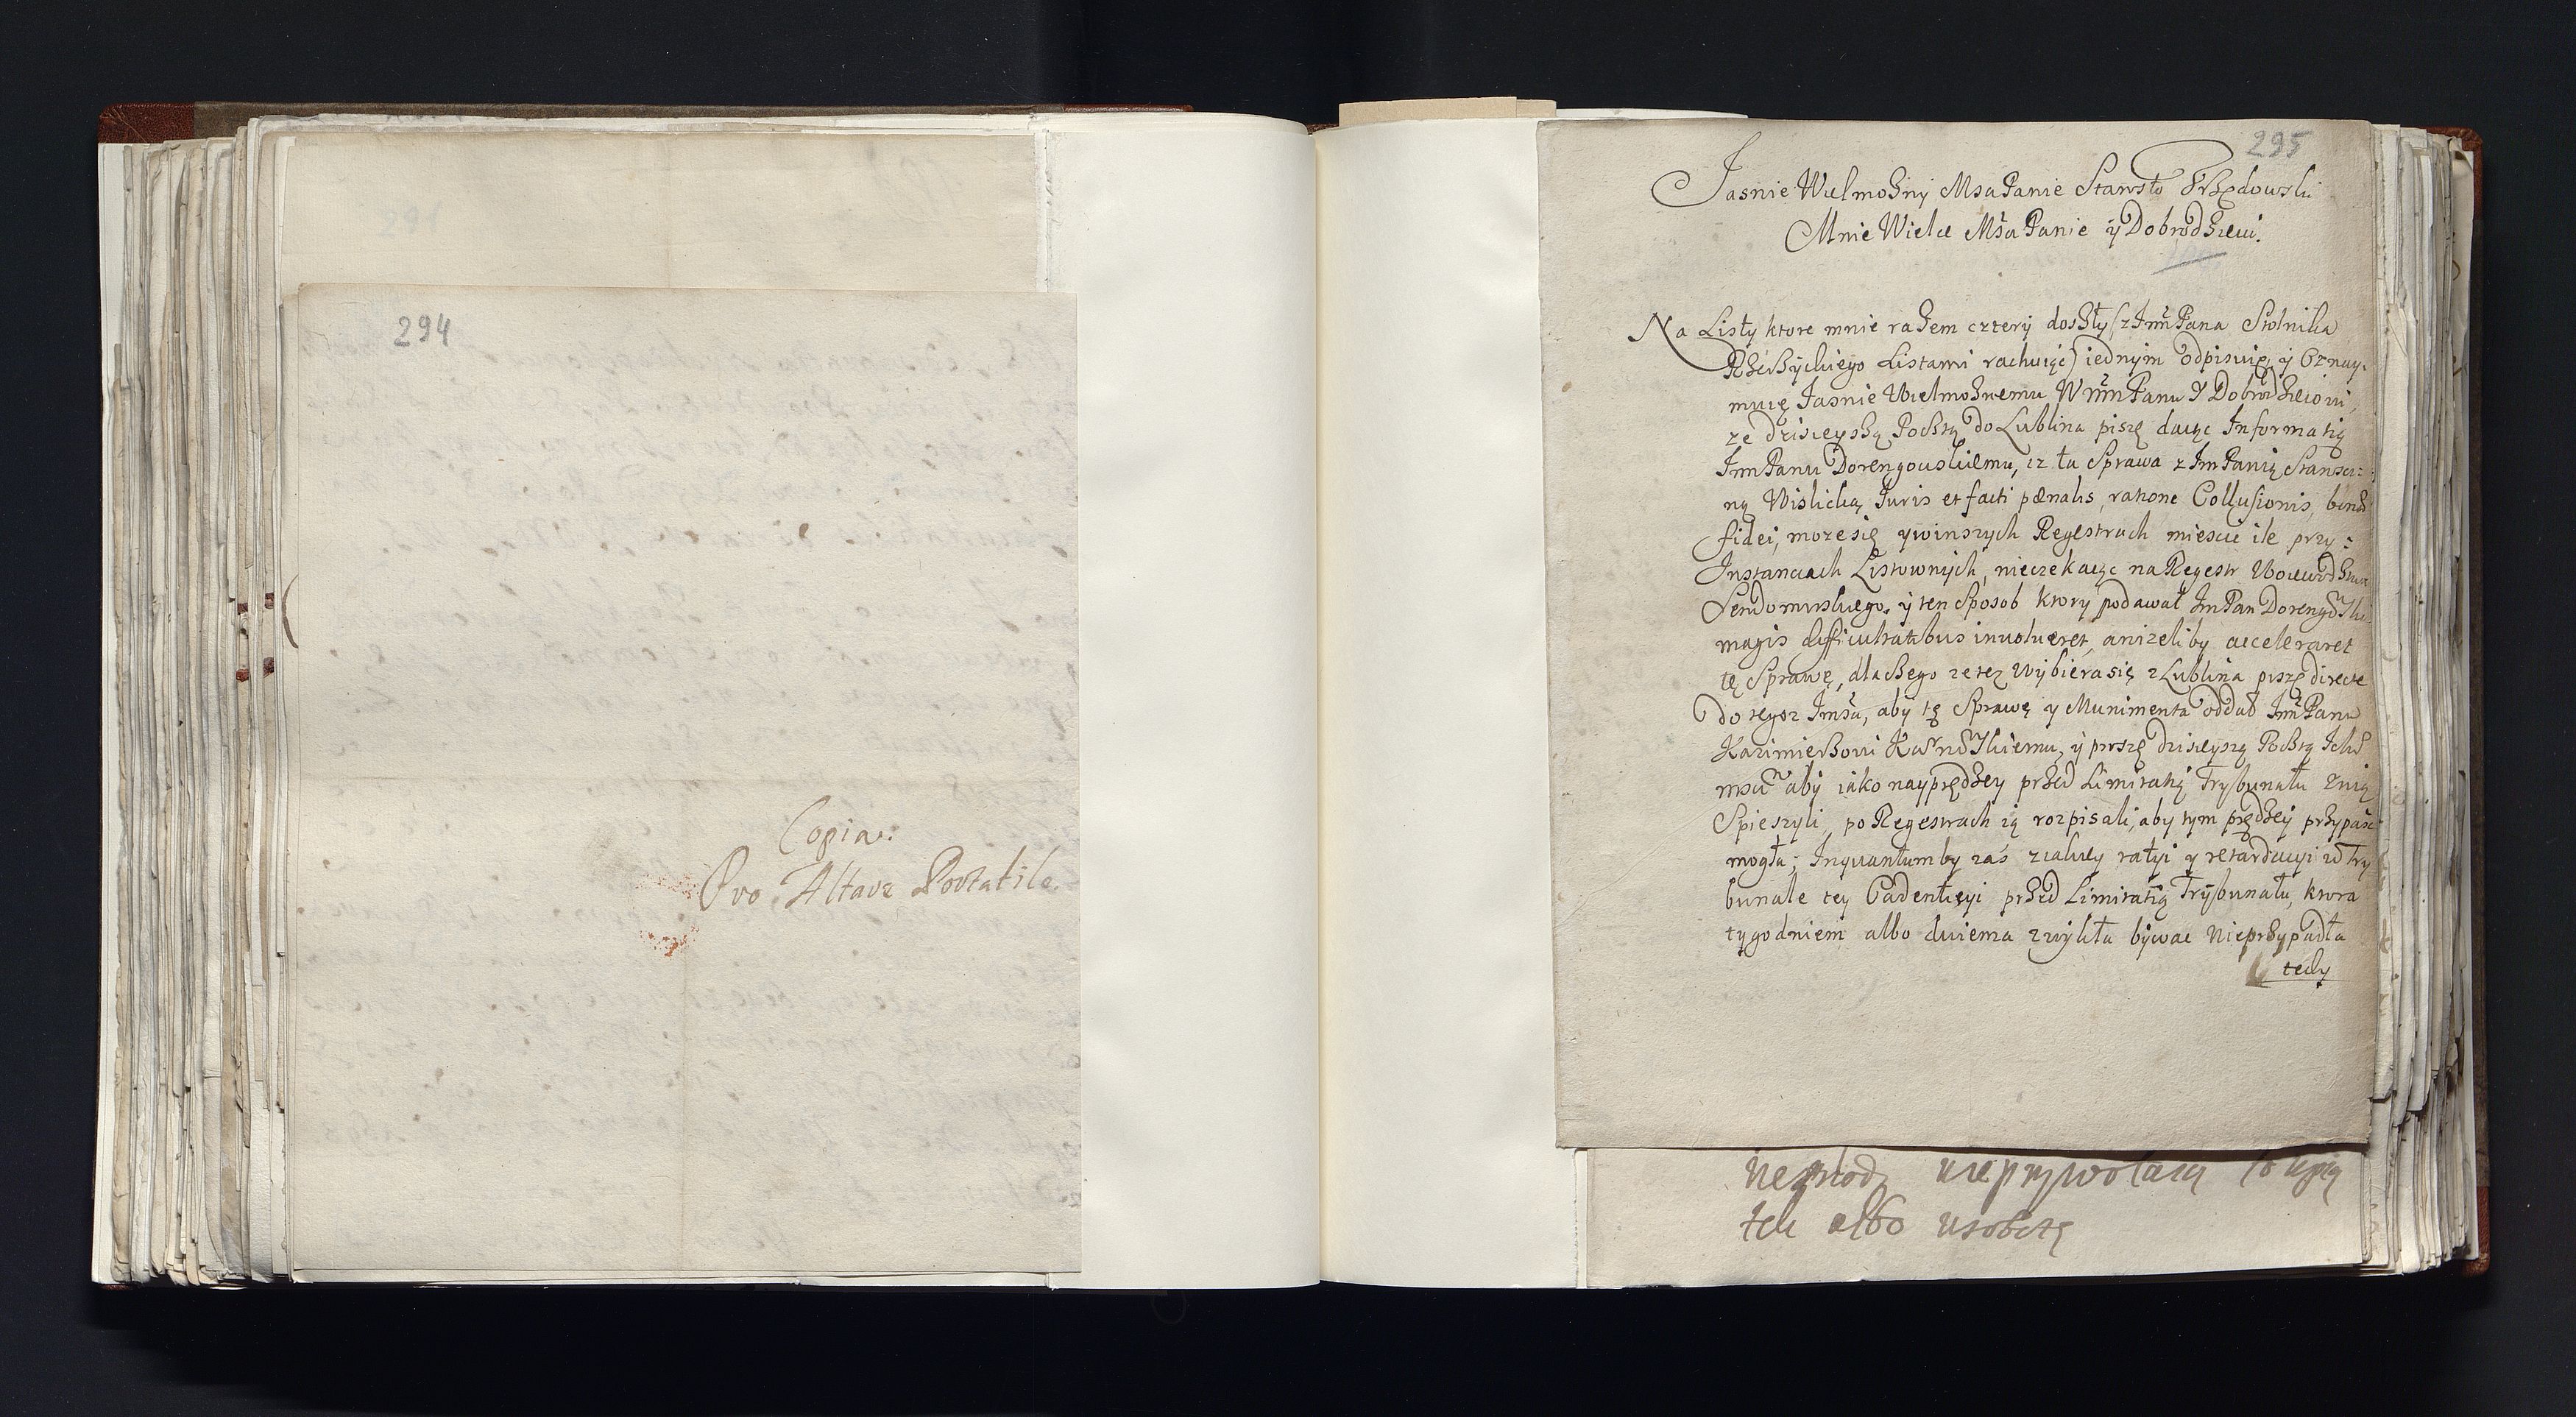 294
Copia.
Pro Altare Portatile.
295
Jasnie Wielmozny Msci Panie Starosto Urzędowski
Mnie Wielce Msci Panie y Dobrodzieiu.
Na Listy ktore mnie razem cztery doszły (z Jmm Pana Stolnika
Listami rachuiąc) iednym odpisuię, y Oznay-
muię Jasnie Wielmoznemu Wmm Panu y Dobrodzieiowi,
ze dzisieyszą Posztą do Lublina piszę daiąc Informatią
Jm Panu Dorengowskiemu, iz ta Sprawa z Jm Panią Starosci-
ną Wislicką, Juris et facti pœnalis, ratione Collusionis, bonæ
fidei, moze się y w inszych Regestrach miescic ile przy
Instanciach Listownych, nieczekaiąc na Regestr Woiewodztwa
Sendomirskiego, y ten Sposob ktory podawał Jm Pan
magis difficultatibus involveret, anizeliby acceleraret
tę Sprawę, dla czego ze tez wybiera się z Lublina piszę directe
do tegoz Jmsci, aby tę Sprawę y Munimenta oddał Jm Panu
Kazimierzowi y proszę dzisieyszą Posztą Ich
msciow aby iako nayprędzey przed Limitatią Trybunału z nią
Spieszyli, po Regestrach ią rozpisali, aby tym prędzey przypasc
mogła; Inquantum by zas z iakiey ratyi y retardacyi w Try
bunale tey Cadentięyi przed Limitatią Trybunału, ktora
tygodniem albo dwiema zwykła bywac nieprzypadła
tedy
nieprzywołaią
albo